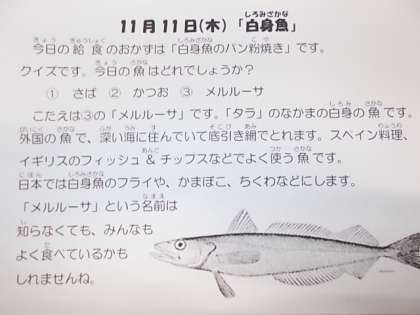 11月11日(木)「白身魚」
今日の給食のおかずは「白身魚のパン粉焼き」です。
クイズです。今日の魚はどれでしょうか?
① さば ② かつお ③ メルルーサ
こたえは③の「メルルーサ」です。「タラ」のなかまの白身の魚です。
外国の魚で、深い海に住んでいて底引き網でとれます。スペイン料理、
イギリスのフィッシュ&チップスなどでよく使う魚です。
日本では白身魚のフライや、かまぼこ、ちくわなどにします。
「メルルーサ」という名前は
知らなくても、みんなも
よく食べているかも
しれませんね。